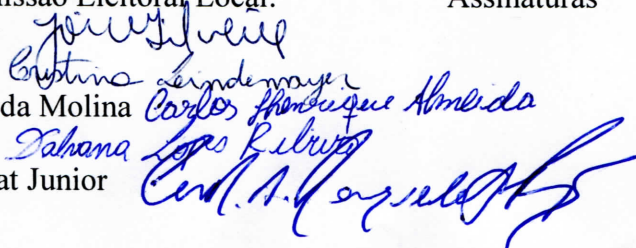 issão Eleitoral Local: Assinaturas
Cristina Leindemayer
da Molina Carlos Henrique Almeida
Dahana Lopes Ribeiro
at Junior